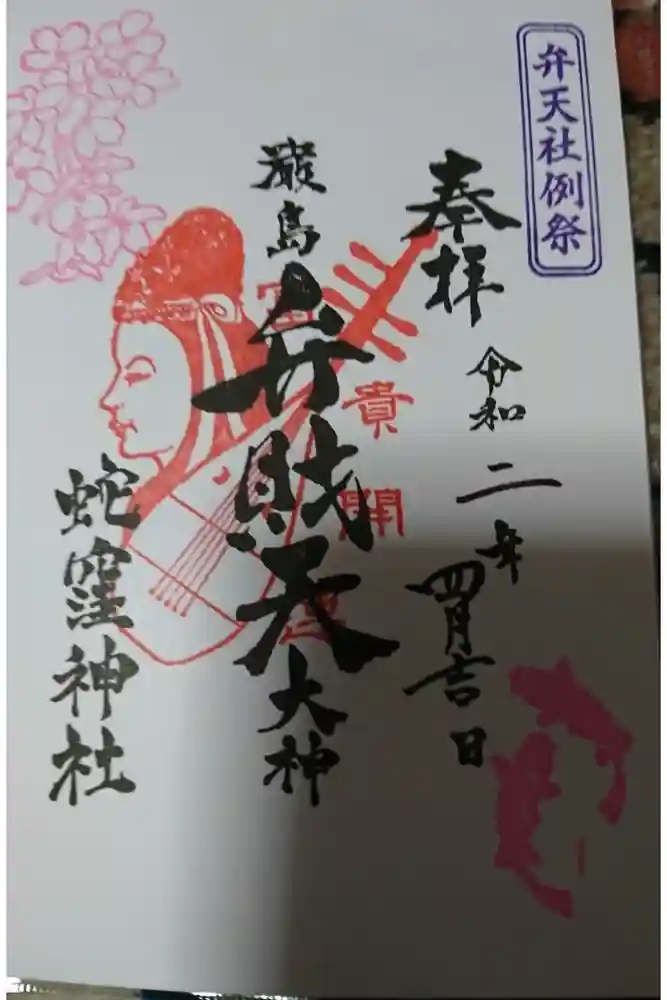 弁天社例祭
奉拝
令和二年
四月吉日
厳島
弁財天
大神
富貴開運
蛇窪神社